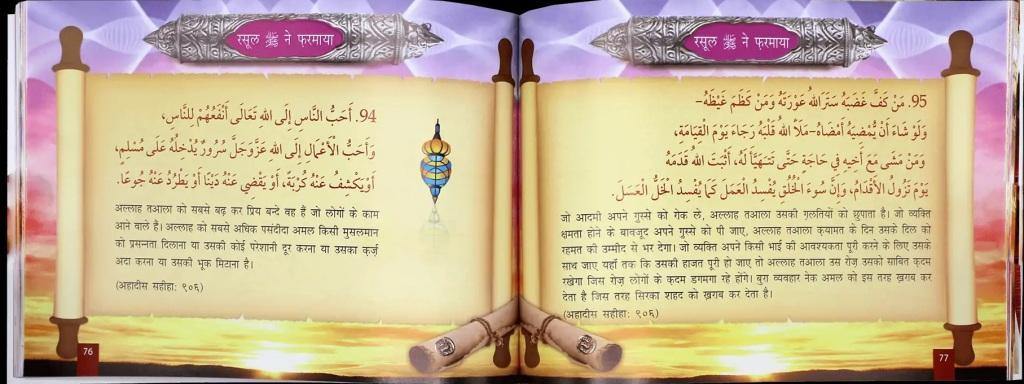 रसूल ﷺ ने फरमाया
94. أَحَبُّ النَّاسِ إِلَى اللهِ تَعَالَى أَنْفَعُهُمْ لِلنَّاسِ،
وَأَحَبُّ الْأَعْمَالِ إِلَى اللهِ عَزَّوَجَلَّ سُرُورٌ يُدْخِلُهُ عَلَى مُسْلِمٍ،
أَوْ يَكْشِفُ عَنْهُ كُرْبَةً، أَوْ يَقْضِي عَنْهُ دَيْنًا أَوْ يَطْرُدُ عَنْهُ جُوعًا.
अल्लाह तआला को सबसे बढ़ कर प्रिय बन्दे वह हैं जो लोगों के काम
आने वाले हैं। अल्लाह को सबसे अधिक पसंदीदा अमल किसी मुसलमान
को प्रसन्नता दिलाना या उसकी कोई परेशानी दूर करना या उसका कर्ज़
अदा करना या उसकी भूक मिटाना है।
(अहादीस सहीहा: ९०६)
76
रसूल ﷺ ने फरमाया
95. مَنْ كَفَّ غَضَبَهُ سَتَرَ اللهُ عَوْرَتَهُ وَمَنْ كَظَمَ غَيْظَهُ-
وَلَوْ شَاءَ أَنْ يُمْضِيَهُ أَمْضَاهُ-مَلَأَ اللهُ قَلْبَهُ رَجَاءَ يَوْمَ الْقِيَامَةِ،
وَمَنْ مَشَى مَعَ أَخِيهِ فِي حَاجَةٍ حَتَّى تَتَهَيَّأَ لَهُ، أَثْبَتَ اللهُ قَدَمَهُ
يَوْمَ تَزُولُ الْأَقْدَامُ، وَإِنَّ سُوءَ الْخُلُقِ يُفْسِدُ الْعَمَلَ كَمَا يُفْسِدُ الْخَلُّ الْعَسَلَ.
जो आदमी अपने गुस्से को रोक ले, अल्लाह तआला उसकी ग़लतियों को छुपाता है। जो व्यक्ति
क्षमता होने के बावजूद अपने गुस्से को पी जाए, अल्लाह तआला क़यामत के दिन उसके दिल को
रहमत की उम्मीद से भर देगा। जो व्यक्ति अपने किसी भाई की आवश्यकता पूरी करने के लिए उसके
साथ जाए यहाँ तक कि उसकी हाजत पूरी हो जाए तो अल्लाह तआला उस रोज़ उसको साबित क़दम
रखेगा जिस रोज़ लोगों के क़दम डगमगा रहे होंगे। बुरा व्यवहार नेक अमल को इस तरह ख़राब कर
देता है जिस तरह सिरका शहद को ख़राब कर देता है।
(अहादीस सहीहा: ९०६)
77